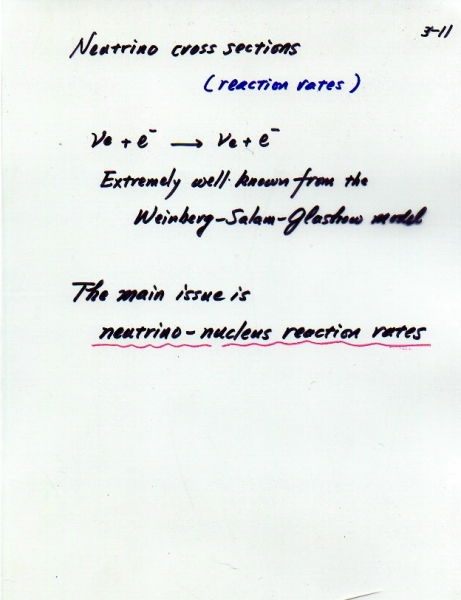 3-11
Neutrino cross sections
(reaction rates)
νe + e⁻ → νe + e⁻
Extremely well known from the
Weinberg-Salam-Glashow model
The main issue is
neutrino-nucleus reaction rates